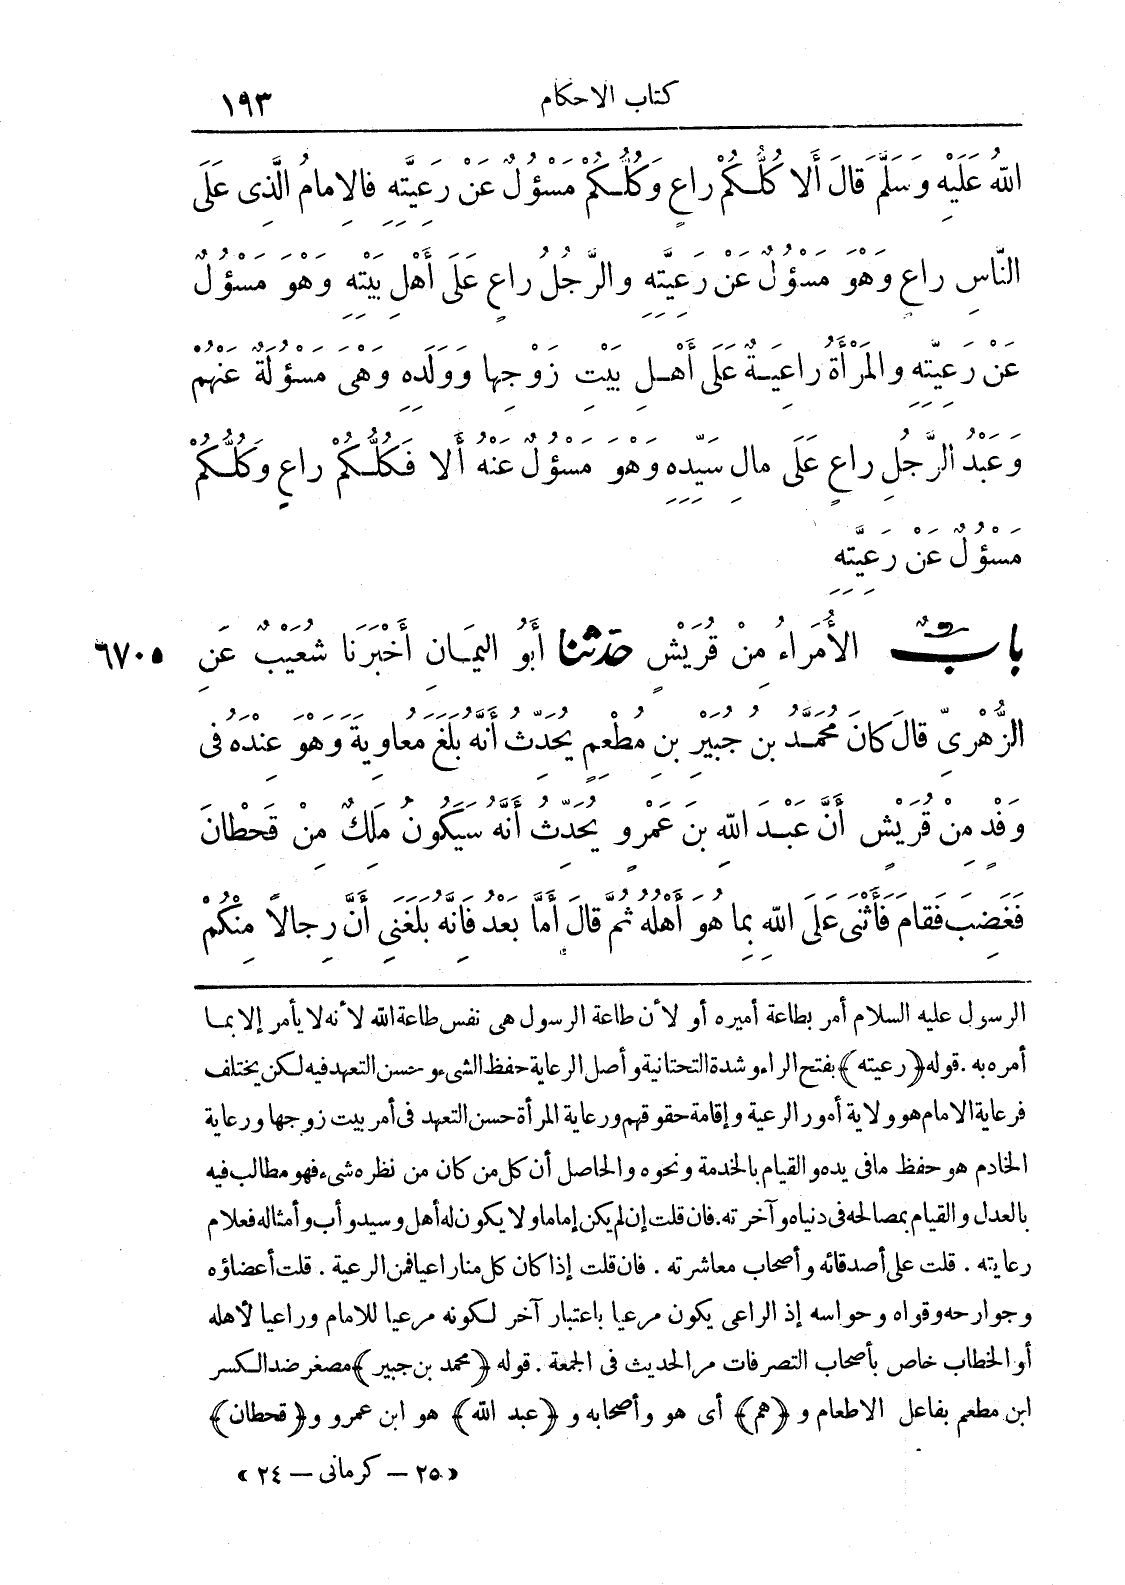 كتاب الاحكام ١٩٣
اللهُ عَلَيْهِ وَسَلَّمَ قَالَ أَلَا كُلُّكُمْ رَاعٍ وَكُلُّكُمْ مَسْؤُلٌ عَنْ رَعِيَّتِهِ فَالاِمامُ الَّذِى عَلَى
النَّاسِ رَاعٍ وَهْوَ مَسْؤُلٌ عَنْ رَعِيَّتِهِ وَالرَّجُلُ رَاعٍ عَلَى أَهْلِ بَيْتِهِ وَهْوَ مَسْؤُلٌ
عَنْ رَعِيَّتِهِ وَالمَرْأَةُ رَاعِيَةٌ عَلَى أَهْلِ بَيْتِ زَوْجِها وَوَلَدِهِ وَهْىَ مَسْؤُلَةٌ عَنْهُمْ
وَعَبْدُ الرَّجُلِ رَاعٍ عَلَى مالِ سَيِّدِهِ وَهْوَ مَسْؤُلٌ عَنْهُ أَلا فَكُلُّكُمْ رَاعٍ وَكُلُّكُمْ
مَسْؤُلٌ عَنْ رَعِيَّتِهِ
بابٌ الأُمَرَاءُ مِنْ قُرَيْشٍ حَدَّثَنَا أَبُو اليَمَانِ أَخْبَرَنَا شُعَيْبٌ عَنِ ٦٧٠٥
الزُّهْرِىِّ قَالَ كَانَ مُحَمَّدُ بْنُ جُبَيْرِ بْنِ مُطْعِمٍ يُحَدِّثُ أَنَّهُ بَلَغَ مُعَاوِيَةَ وَهْوَ عِنْدَهُ فِى
وَفْدٍ مِنْ قُرَيْشٍ أَنَّ عَبْدَ اللهِ بْنَ عَمْرٍو يُحَدِّثُ أَنَّهُ سَيَكُونُ مَلِكٌ مِنْ قَحْطَانَ
فَغَضِبَ فَقَامَ فَأَثْنَى عَلَى اللهِ بِمَا هُوَ أَهْلُهُ ثُمَّ قَالَ أَمَّا بَعْدُ فَانَّهُ بَلَغَنِى أَنَّ رِجَالاً مِنْكُمْ
الرسول عليه السلام أمر بطاعة أميره أو لأن طاعة الرسول هى نفس طاعة الله لأنه لا يأمر إلا بما
أمره به. قوله ﴿رعيته﴾ بفتح الراء وشدة التحتانية وأصل الرعاية حفظ الشىء وحسن التعهد فيه لكن يختلف
فرعاية الامام هو ولاية أمور الرعية وإقامة حقوقهم ورعاية المرأة حسن التعهد فى أمر بيت زوجها ورعاية
الخادم هو حفظ مافى يده والقيام بالخدمة ونحوه والحاصل أن كل من كان من نظره شىء فهو مطالب فيه
بالعدل والقيام بمصالحه فى دنياه وآخرته. فان قلت إن لم يكن إماما ولا يكون له أهل وسيد وأب وأمثاله فعلام
رعايته. قلت على أصدقائه وأصحاب معاشرته. فان قلت إذا كان كل منا راعيا فمن الرعية. قلت أعضاؤه
وجوارحه وقواه وحواسه إذ الراعى يكون مرعيا باعتبار آخر لكونه مرعيا للامام وراعيا لأهله
أو الخطاب خاص بأصحاب التصرفات مر الحديث فى الجمعة. قوله ﴿محمد بن جبير﴾ مصغر ضد الكسر
ابن مطعم بفاعل الاطعام و﴿هم﴾ أى هو وأصحابه و﴿عبد الله﴾ هو ابن عمرو و﴿قحطان﴾
«٢٥ – كرمانى – ٢٤»